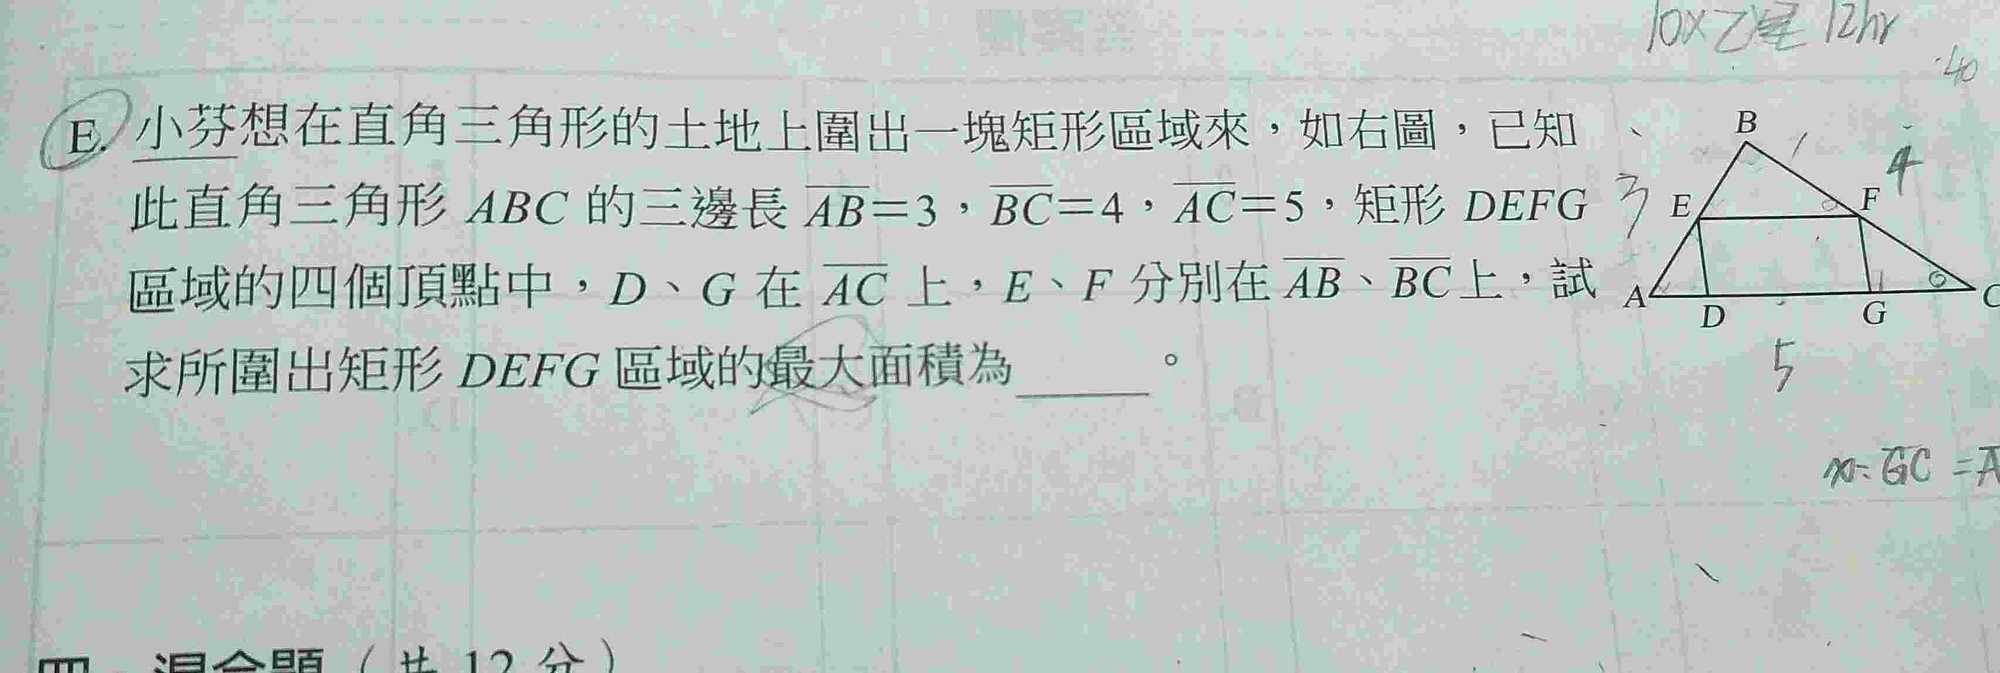 10×2 12hr
40
E. 小芬想在直角三角形的土地上圍出一塊矩形區域來，如右圖，已知
此直角三角形 ABC 的三邊長 AB=3，BC=4，AC=5，矩形 DEFG
區域的四個頂點中，D、G 在 AC 上，E、F 分別在 AB、BC上，試
求所圍出矩形 DEFG 區域的最大面積為____。
B
4
3 E F
A D G C
5
GC =A
四、混合題（共 12 分）